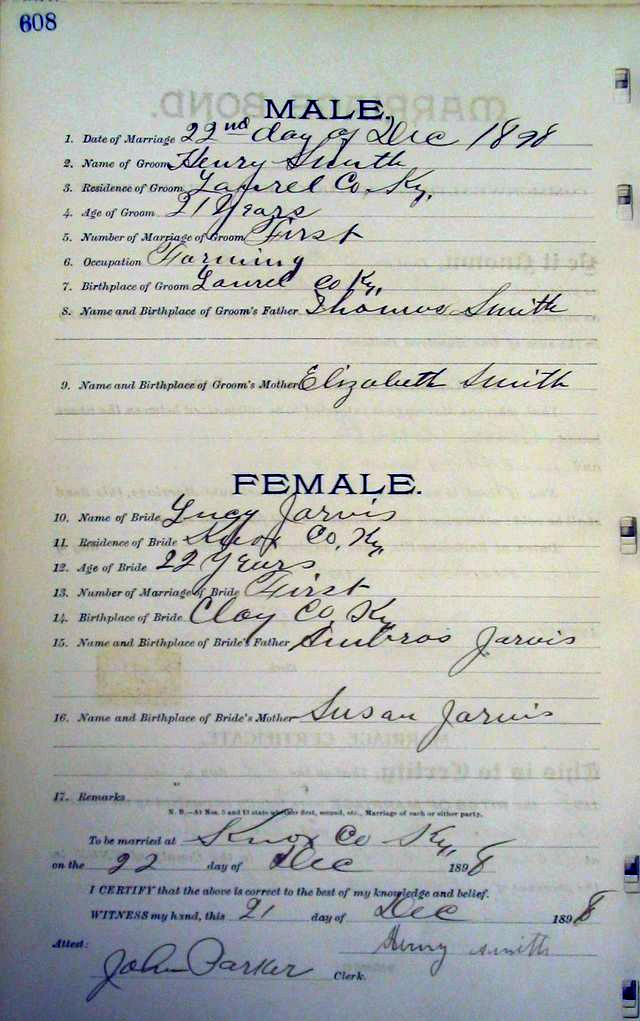 608
MALE.
1. Date of Marriage 22nd day of Dec 1898
2. Name of Groom Henry Smith
3. Residence of Groom Laurel Co Ky.
4. Age of Groom 21 Years
5. Number of Marriage of Groom First
6. Occupation Farming
7. Birthplace of Groom Laurel Co Ky,
8. Name and Birthplace of Groom's Father Thomas Smith
9. Name and Birthplace of Groom's Mother Elizabeth Smith
FEMALE.
10. Name of Bride Lucy Jarvis
11. Residence of Bride Knox Co, Ky,
12. Age of Bride 22 Years
13. Number of Marriage of Bride First
14. Birthplace of Bride Clay Co, Ky
15. Name and Birthplace of Bride's Father Ambros Jarvis
16. Name and Birthplace of Bride's Mother Susan Jarvis
17. Remarks
N. B.—At Nos. 5 and 13 state whether first, second, etc., Marriage of each or either party.
To be married at Knox Co Ky,
on the 22 day of Dec 1898
I CERTIFY that the above is correct to the best of my knowledge and belief.
WITNESS my hand, this 21 day of Dec 1898
Attest: Henry Smith
John Parker Clerk.